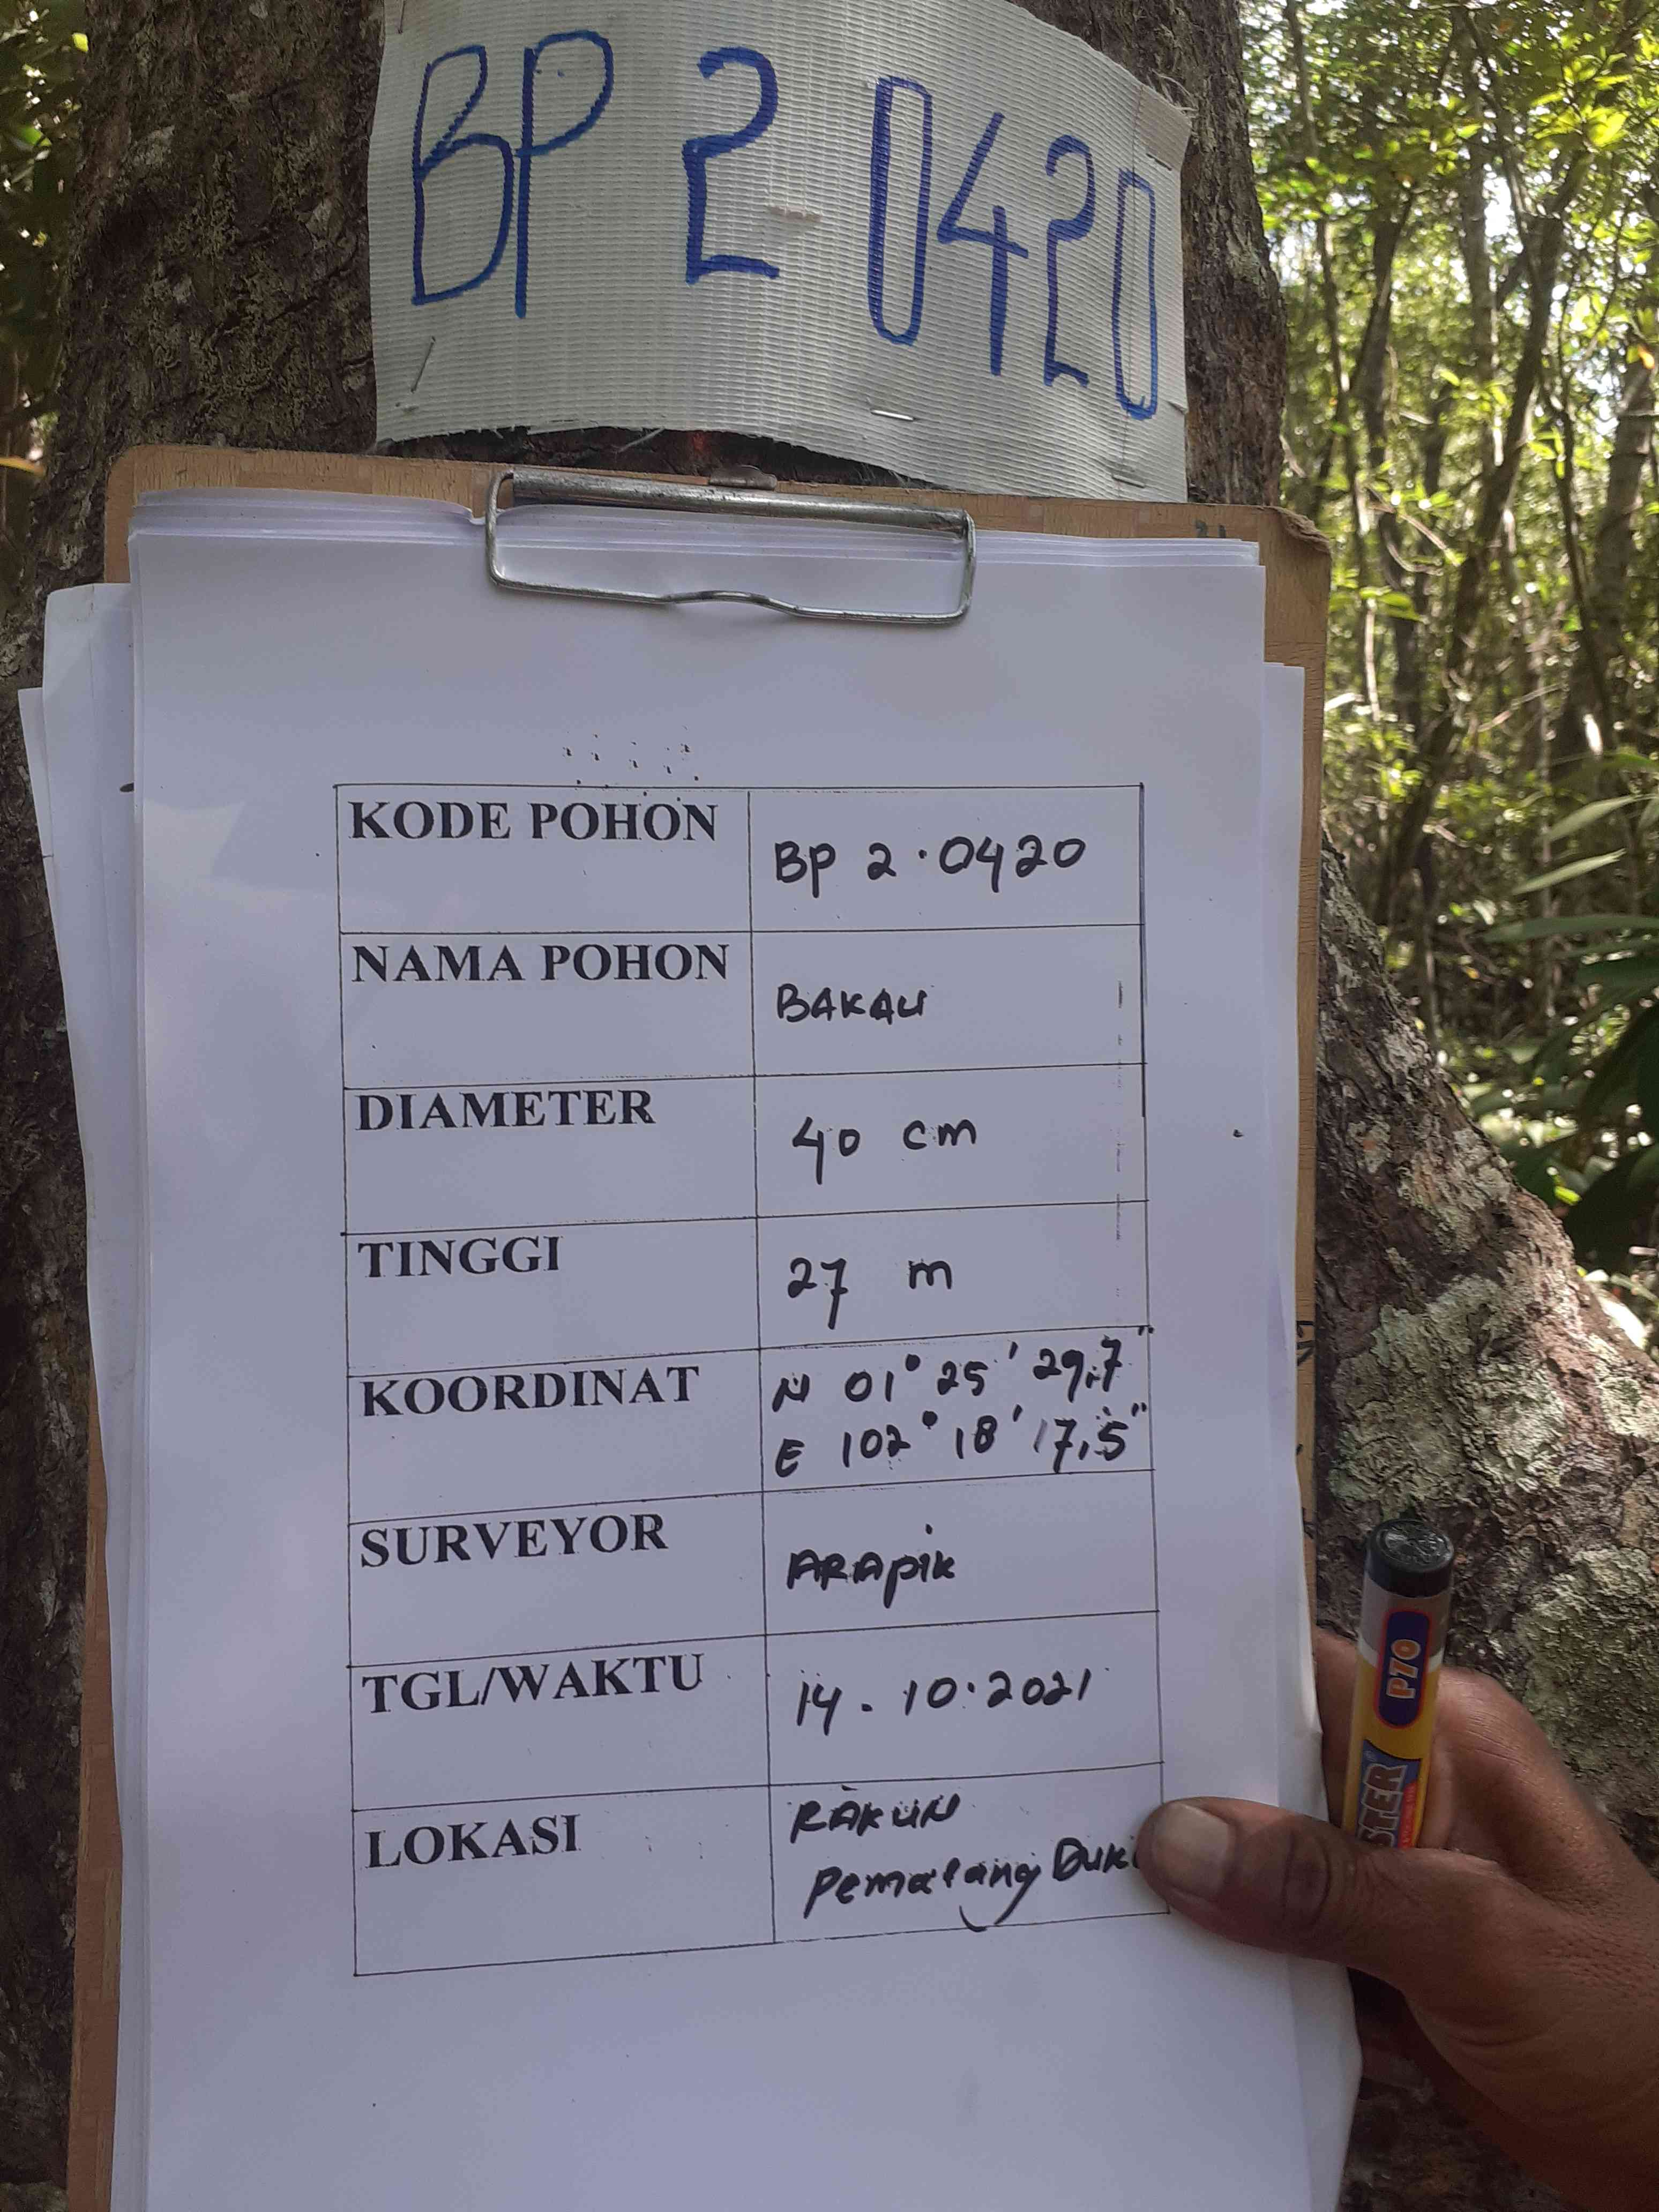 BP 2 0420
KODE POHON BP 2.0420
NAMA POHON BAKAU
DIAMETER 40 cm
TINGGI 27 m
KOORDINAT N 01° 25' 29,7"
E 102° 18' 17,5"
SURVEYOR ARAPIK
TGL/WAKTU 14.10.2021
LOKASI RAKUN
Pematang
P70